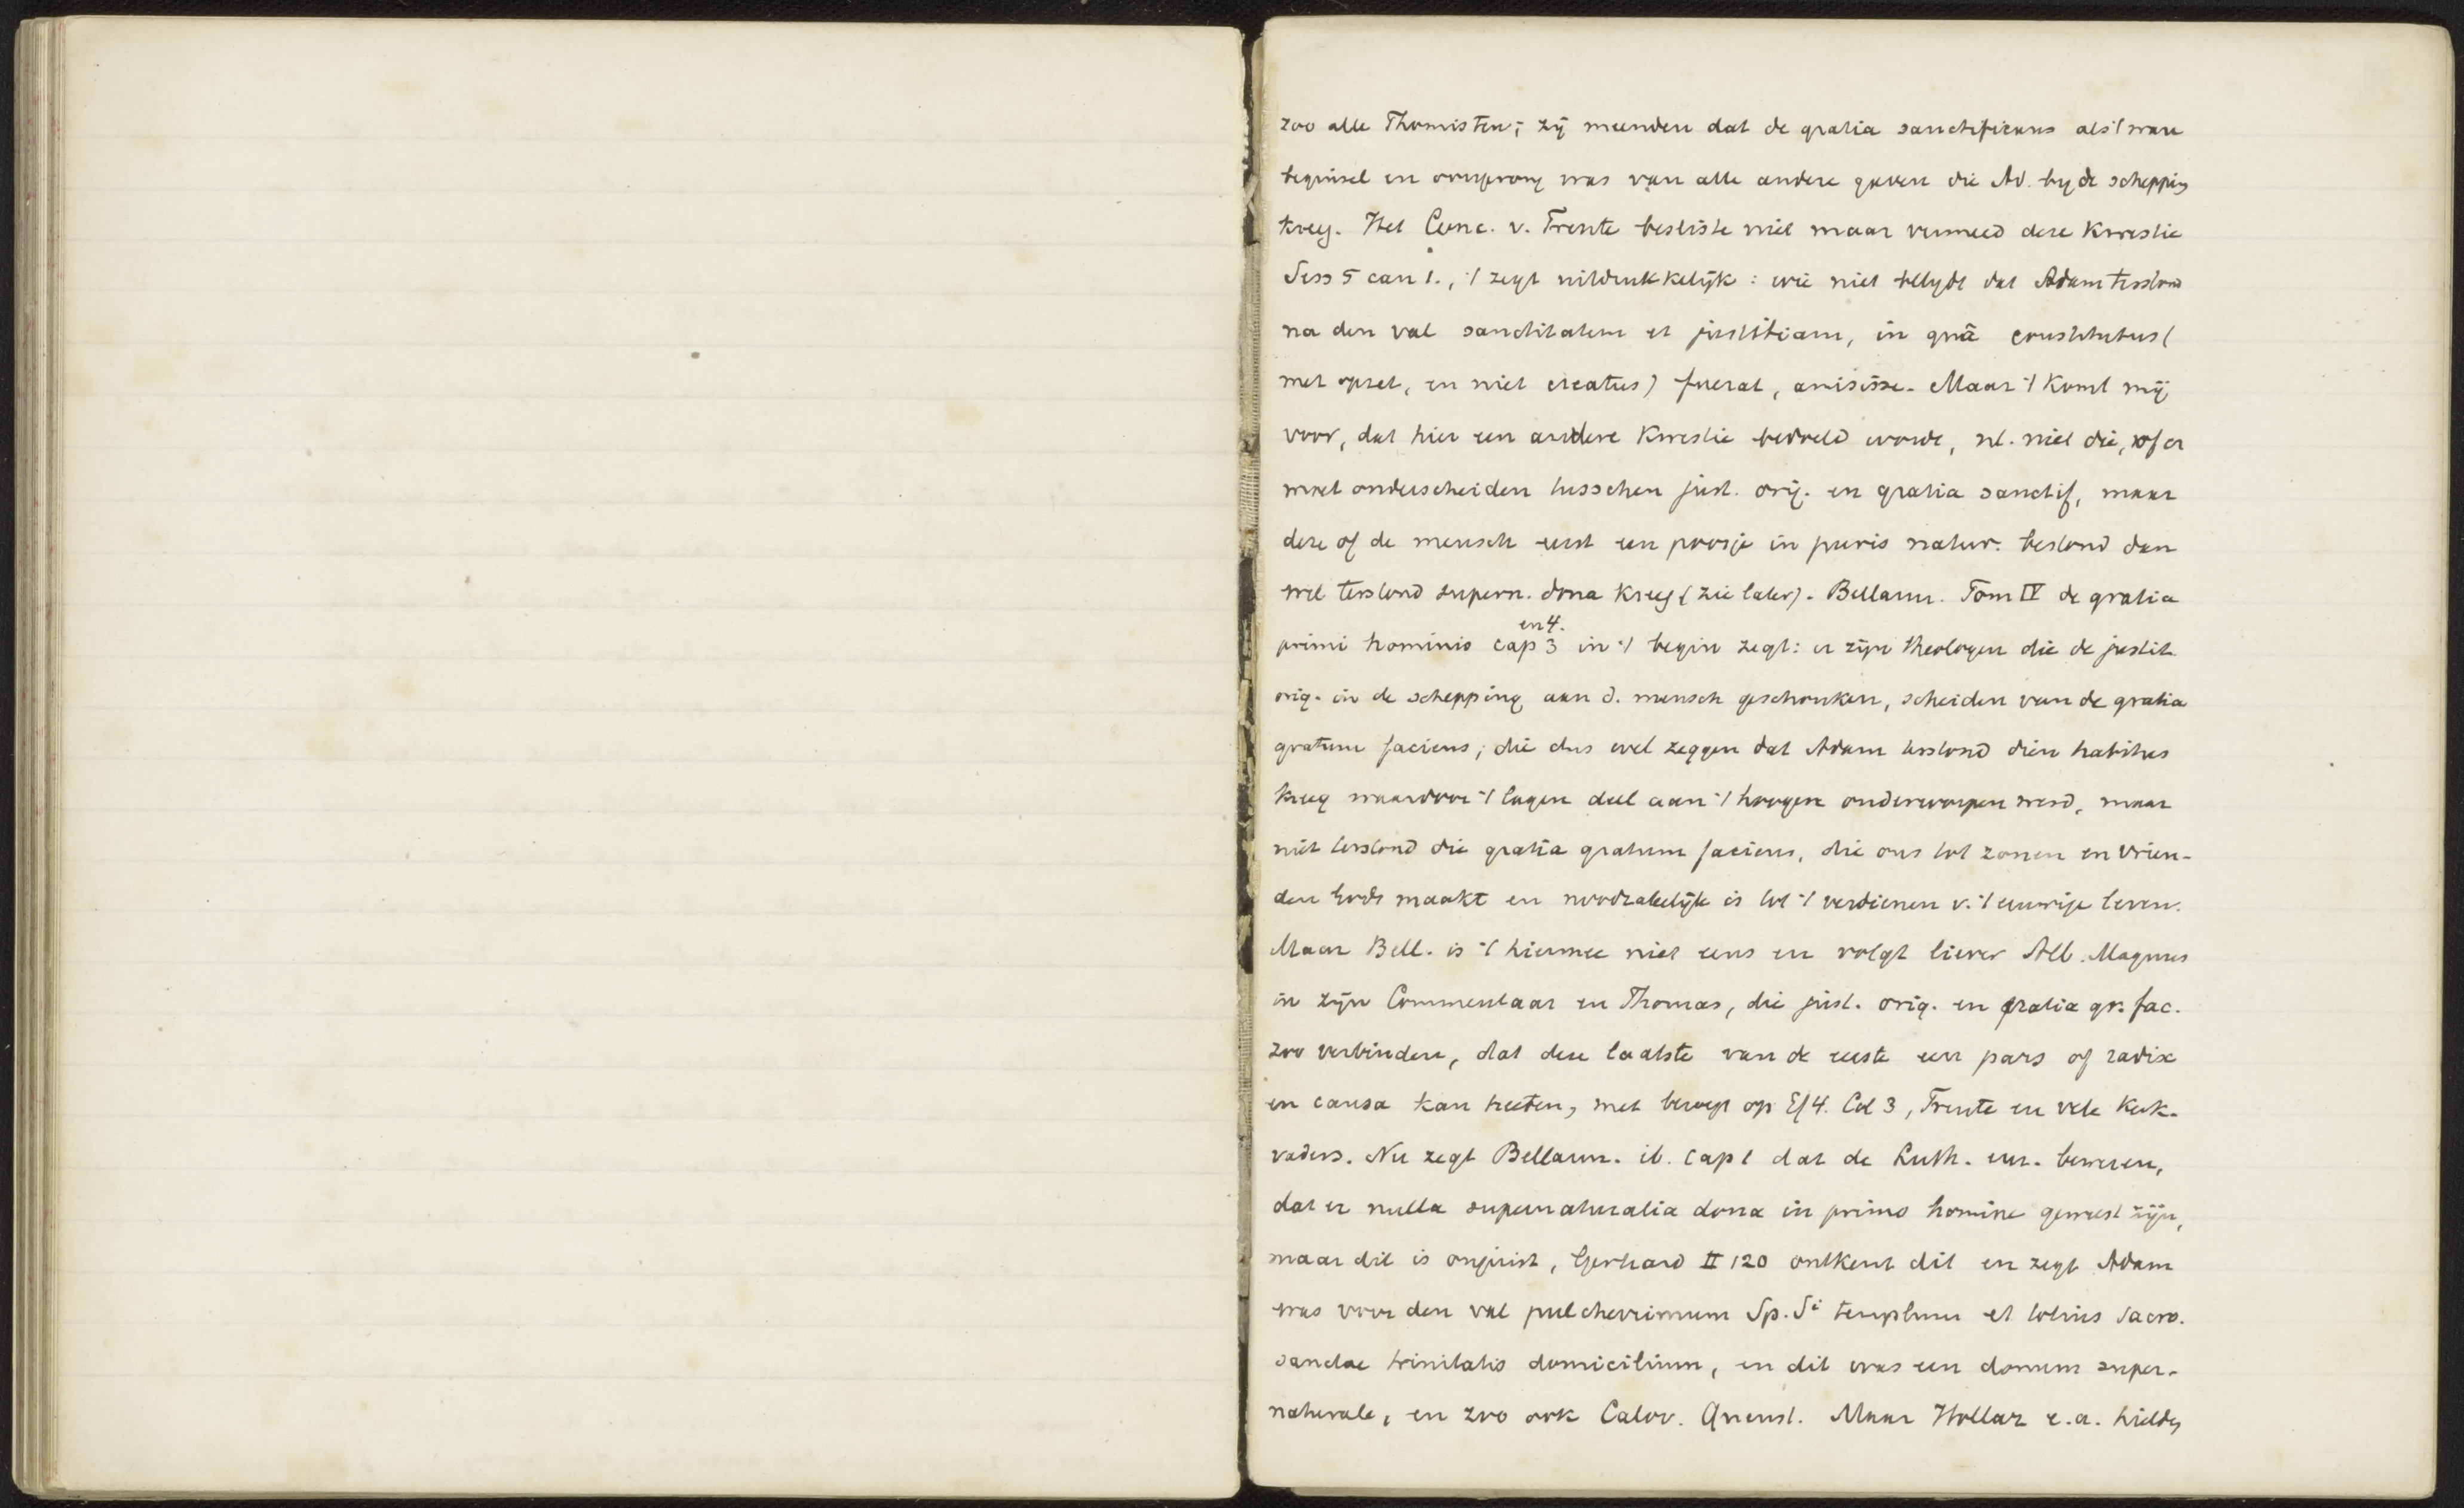 zoo alle Thomisten; zij meenden dat de gratia sanctificans als 't ware
beginsel en oorsprong was van alle andere gaven die Ad. by de schepping
kreeg. Het Conc. v. Trente besliste niet maar vermeed deze kwestie
Sess 5 can 1., 't zegt uitdrukkelijk: wie niet belydt dat Adam terstond
na den val sanctitatem et justitiam, in quâ constitutus (
met opzet, en niet creatus) fuerat, amisisse. Maar 't komt mij
voor, dat hier een andere kwestie bedoeld worde, nl. niet die, of er
moet onderscheiden tusschen just. orig. en gratia sanctif, maar
deze of de mensch eerst een poosje in puris natur. bestond dan
wel terstond supern. dona kreeg (zie later). Bellarm. Tom IV de gratia
primi hominis cap 3 en 4. in 't begin zegt: er zijn theologen die de justit.
orig. in de schepping aan d. mensch geschonken, scheiden van de gratia
gratum faciens; die dus wel zeggen dat Adam terstond dien habitus
kreeg waardoor 't lagere deel aan 't hoogere onderworpen werd, maar
niet terstond die gratia gratum faciens, die ons tot zonen en vrien-
den Gods maakt en noodzakelijk is tot 't verdienen v. 't eeuwige leven.
Maar Bell. is 't hiermee niet eens en volgt liever Alb. Magnus
in zijn Commentaar en Thomas, die just. orig. en gratia gr. fac.
zoo verbinden, dat deze laatste van de eerste een pars of radix
en causa kan heeten, met beroep op Ef 4. Col 3, Trente en vele kerk-
vaders. Nu zegt Bellarm. ib. cap 1 dat de Luth. beweren,
dat er nulla supernaturalia dona in primo homine geweest zijn,
maar dit is onjuist, Gerhard II 120 ontkent dit en zegt Adam
was voor den val pulcherrimum Sp. Si templum et totius sacro.
sanctae trinitatis domicilium, en dit was een donum super-
naturale, en zoo ook Calov. Quenst. Maar Hollaz e.a. hielden